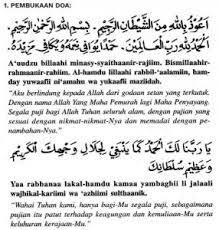 1. PEMBUKAAN DOA:
اَعُوْذُ بِاللهِ مِنَ الشَّيْطَانِ الرَّجِيْمِ. بِسْمِ اللهِ الرَّحْمٰنِ الرَّحِيْمِ
اَلْحَمْدُ لِلّٰهِ رَبِّ الْعَالَمِيْنَ. حَمْدًا يُوَافِيْ نِعَمَهُ وَيُكَافِئُ مَزِيْدَهُ
A'uudzu billaahi minasy-syaithaanir-rajiim. Bismillaahir-
rahmaanir-rahiim. Al-hamdu lillaahi rabbil-'aalamiin, ham-
day yuwaafii ni'amahu wa yukaafii maziidah.
"Aku berlindung kepada Allah dari godaan setan yang terkutuk.
Dengan nama Allah Yang Maha Pemurah lagi Maha Penyayang.
Segala puji bagi Allah Tuhan seluruh alam, dengan pujian yang
sesuai dengan nikmat-nikmat-Nya dan memadai dengan pe-
nambahan-Nya."
يَا رَبَّنَا لَكَ الْحَمْدُ كَمَا يَنْبَغِيْ لِجَلَالِ وَجْهِكَ
الْكَرِيْمِ وَعَظِيْمِ سُلْطَانِكَ.
Yaa rabbanaa lakal-hamdu kamaa yambaghii li jalaali
wajhikal-kariimi wa 'azhiimi sulthaanik.
"Wahai Tuhan kami, hanya bagi-Mu segala puji, sebagaimana
pujian itu patut terhadap keagungan dan kemuliaan-Mu serta
keluhuran kerajaan-Mu."